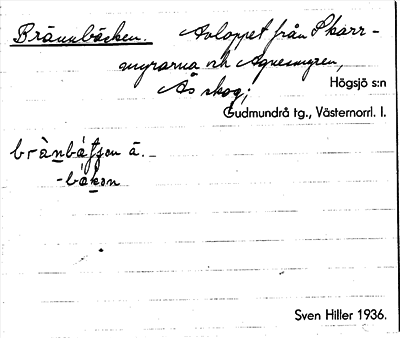 Brännbäcken. Avloppet från Skarr-
myrarna och Agnesmyren,
Ås skog;
Högsjö s:n
Gudmundrå tg., Västernorrl. l.
brànbátjen ä.
-bákən
Sven Hiller 1936.